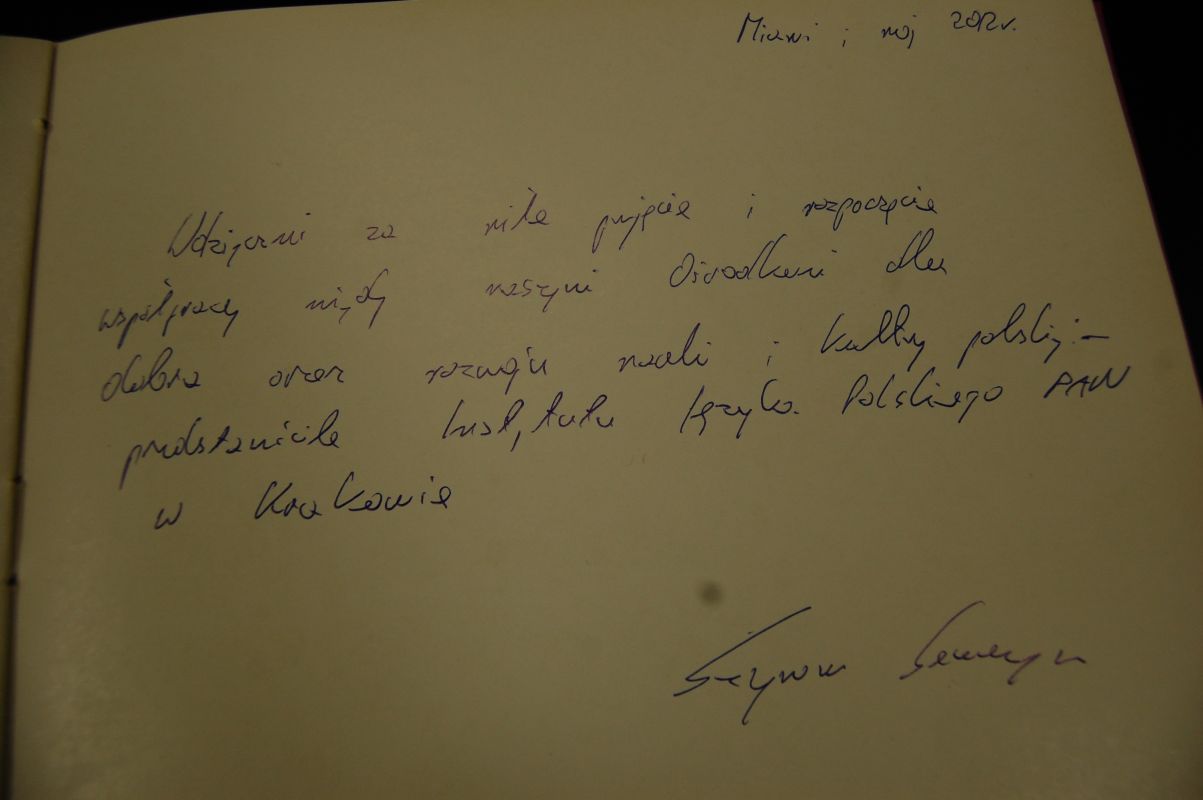 Miami, maj 2012 r.
Wdzięczni za miłe przyjęcie i rozpoczęcie
współpracy między naszymi Ośrodkami dla
dobra oraz rozwoju nauki i kultury polskiej –
przedstawiciele Instytutu Języka Polskiego PAN
w Krakowie
Szymon